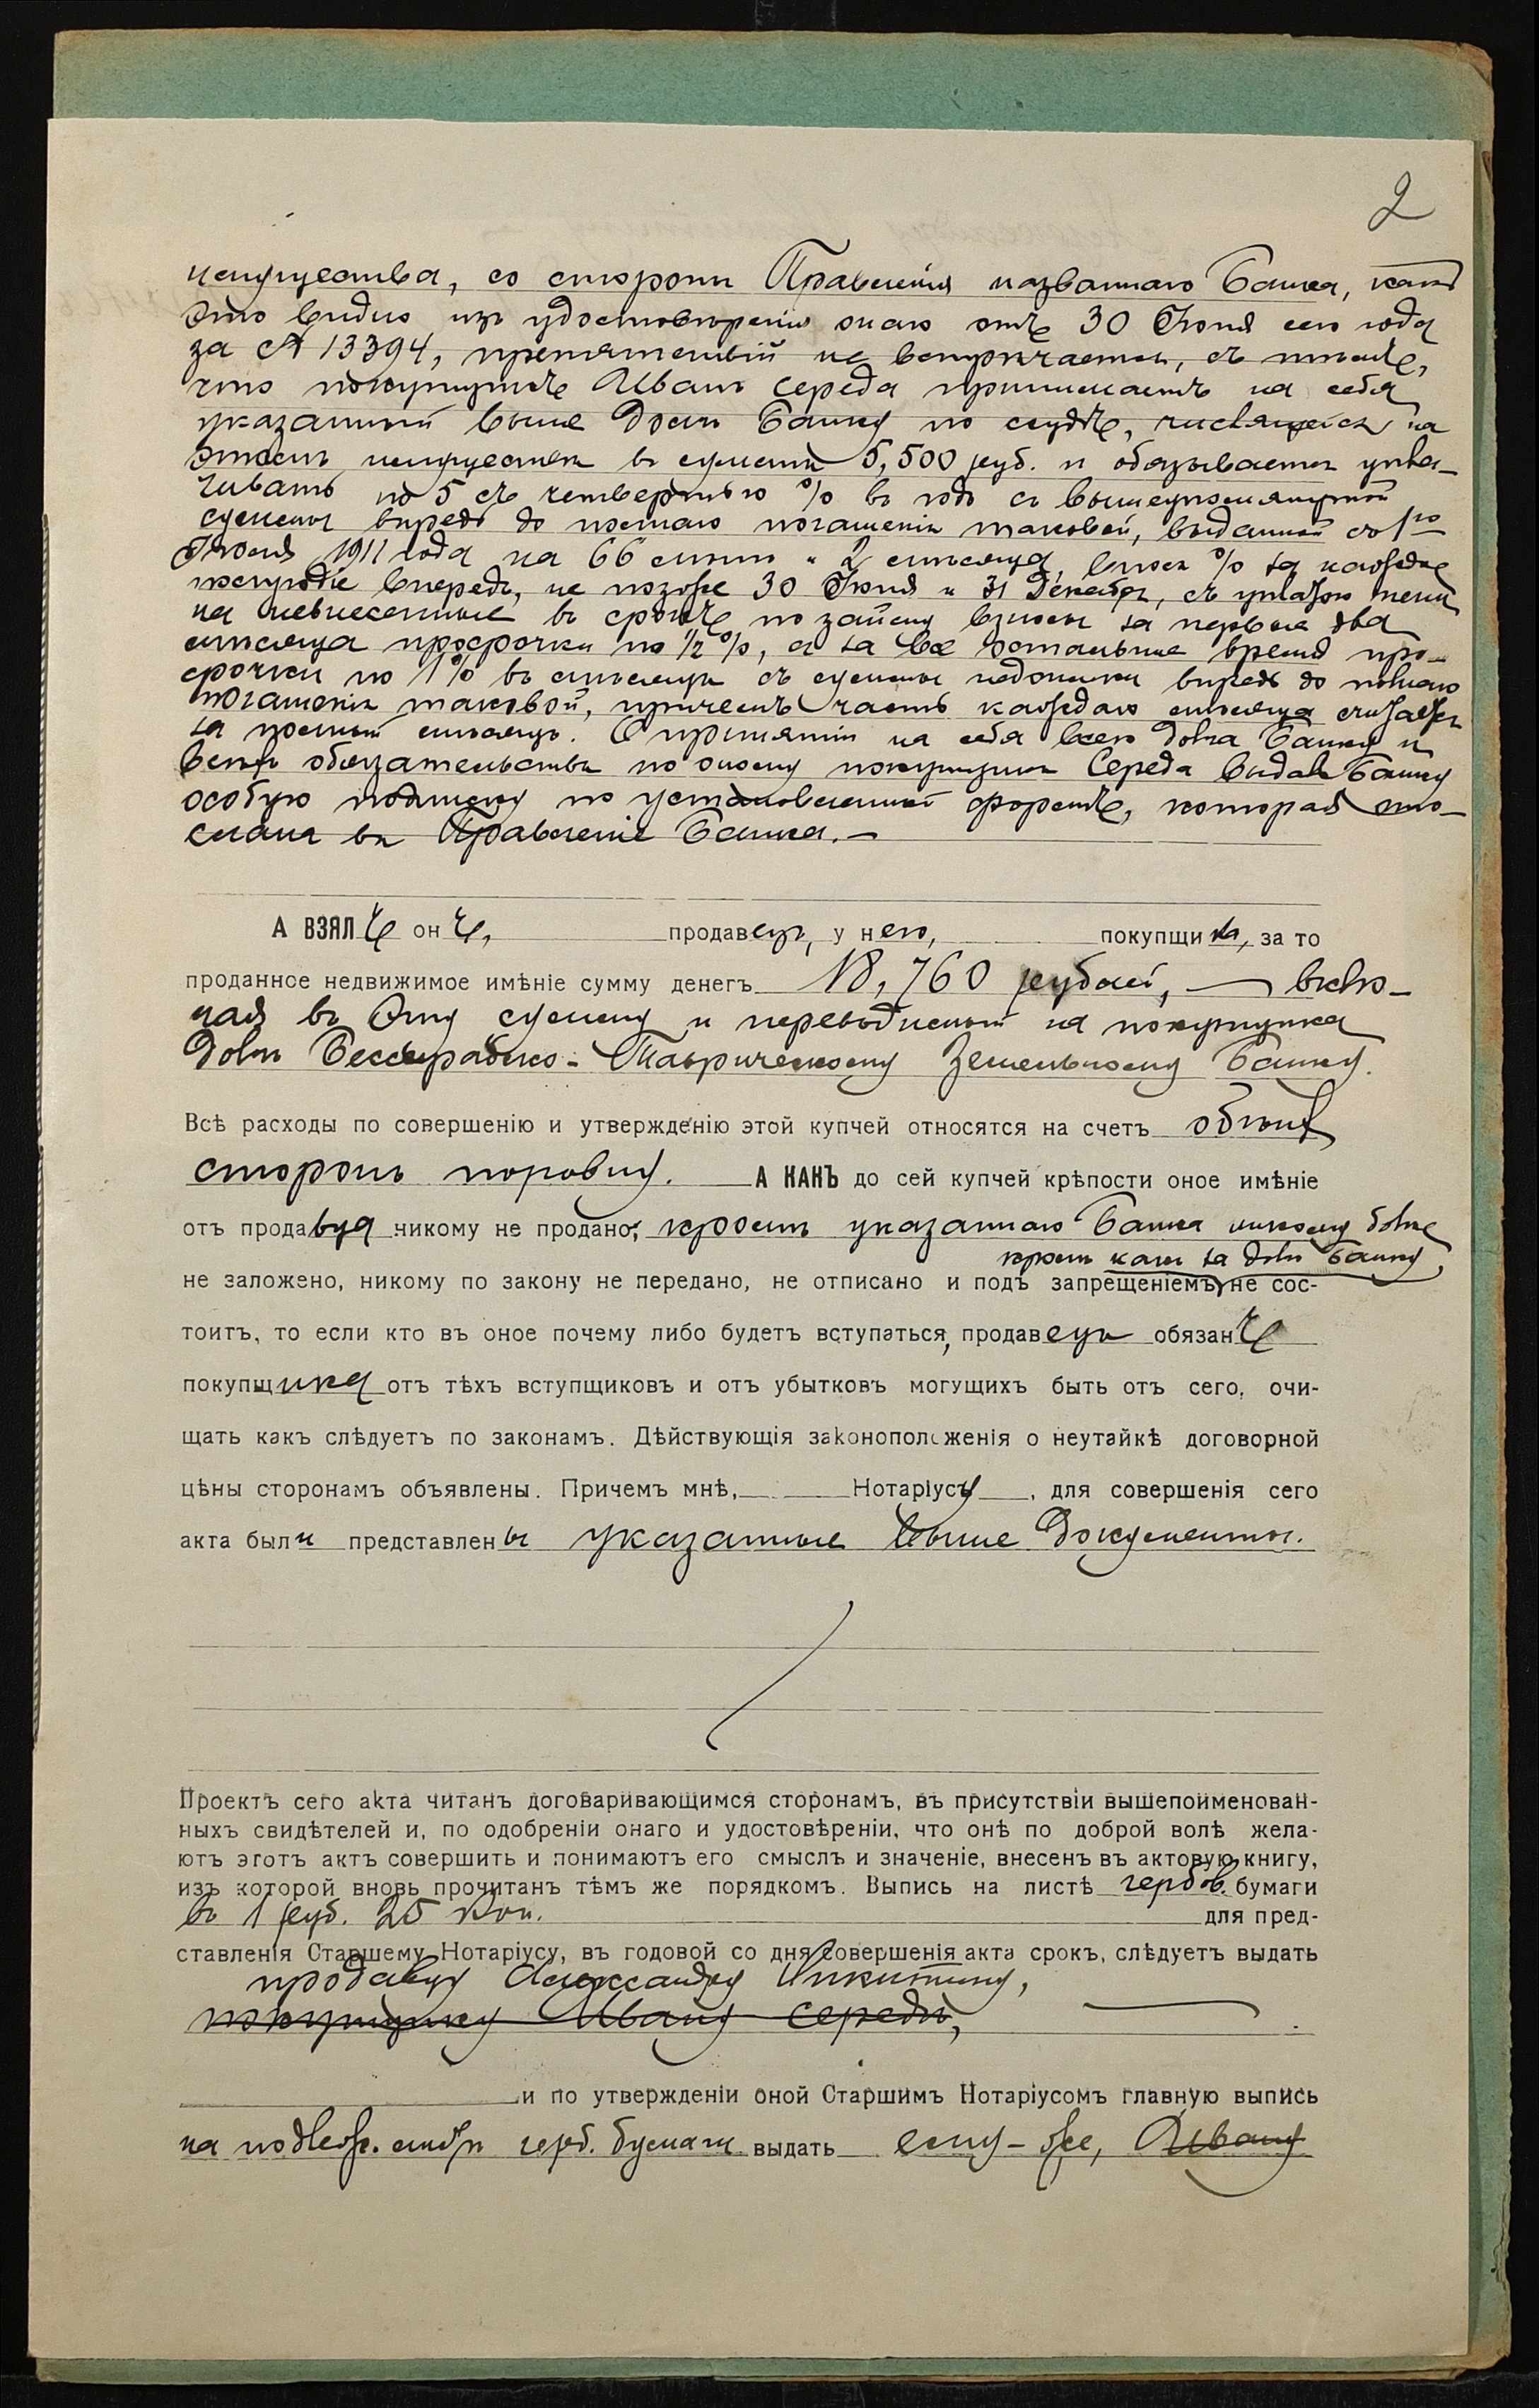 2
имущества, со стороны Правленія названнаго Банка, какъ
это видно изъ удостовѣренія онаго отъ 30 Іюня сего года
за № 13394, препятствій не встрѣчается, съ тѣмъ,
что покупщикъ Иванъ Середа принимаетъ на себя
указанный выше долгъ Банку по ссудѣ, числящейся на
этомъ имуществѣ въ суммѣ 5,500 руб. и обязывается упла-
чивать по 5 съ четвертью % въ годъ съ вышеупомянутой
суммы впредь до полнаго погашенія таковой, выданной съ 1го
Іюля 1911 года на 66 лѣтъ и 2 мѣсяца, внося % за каждое
полугодіе впередъ, не позже 30 Іюня и 31 Декабря, съ уплатою пени
на невнесенные въ срокъ по займу взносы за первые два
мѣсяца просрочки по 1/2 %, а за все остальное время про-
срочки по 1% въ мѣсяцъ съ суммы недоимки впредь до полнаго
погашенія таковой, причемъ часть каждаго мѣсяца считается
за полный мѣсяцъ. О принятіи на себя всего долга Банку и
всѣхъ обязательствъ по оному покупщикъ Середа выдалъ Банку
особую подписку по установленной формѣ, которая ото-
слана въ Правленіе Банка. —
А ВЗЯЛЪ онъ, продавецъ, у него, покупщика, за то
проданное недвижимое имѣніе сумму денегъ 18,760 рублей, — вклю-
чая въ эту сумму и переводимый на покупщика
долгъ Бессарабско-Таврическому Земельному Банку.
Всѣ расходы по совершенію и утвержденію этой купчей относятся на счетъ обѣихъ
сторонъ поровну. А КАКЪ до сей купчей крѣпости оное имѣніе
отъ продавца никому не продано, кромѣ указаннаго Банка никому болѣе
кромѣ какъ за долгъ Банку,
не заложено, никому по закону не передано, не отписано и подъ запрещеніемъ не сос-
тоитъ, то если кто въ оное почему либо будетъ вступаться, продавецъ обязанъ
покупщика отъ тѣхъ вступщиковъ и отъ убытковъ могущихъ быть отъ сего, очи-
щать какъ слѣдуетъ по законамъ. Дѣйствующія законоположенія о неутайкѣ договорной
цѣны сторонамъ объявлены. Причемъ мнѣ, Нотаріусу, для совершенія сего
акта были представлены указанные выше документы.
Проектъ сего акта читанъ договаривающимся сторонамъ, въ присутствіи вышепоименован-
ныхъ свидѣтелей и, по одобреніи онаго и удостовѣреніи, что онѣ по доброй волѣ жела-
ютъ этотъ актъ совершить и понимаютъ его смыслъ и значеніе, внесенъ въ актовую книгу,
изъ которой вновь прочитанъ тѣмъ же порядкомъ. Выпись на листѣ гербов. бумаги
въ 1 руб. 25 коп. для пред-
ставленія Старшему Нотаріусу, въ годовой со дня совершенія акта срокъ, слѣдуетъ выдать
продавцу Александру Никитину,
покупщику Ивану Середѣ,
и по утвержденіи оной Старшимъ Нотаріусомъ главную выпись
на подлеж. листѣ герб. бумаги выдать ему-же, Ивану